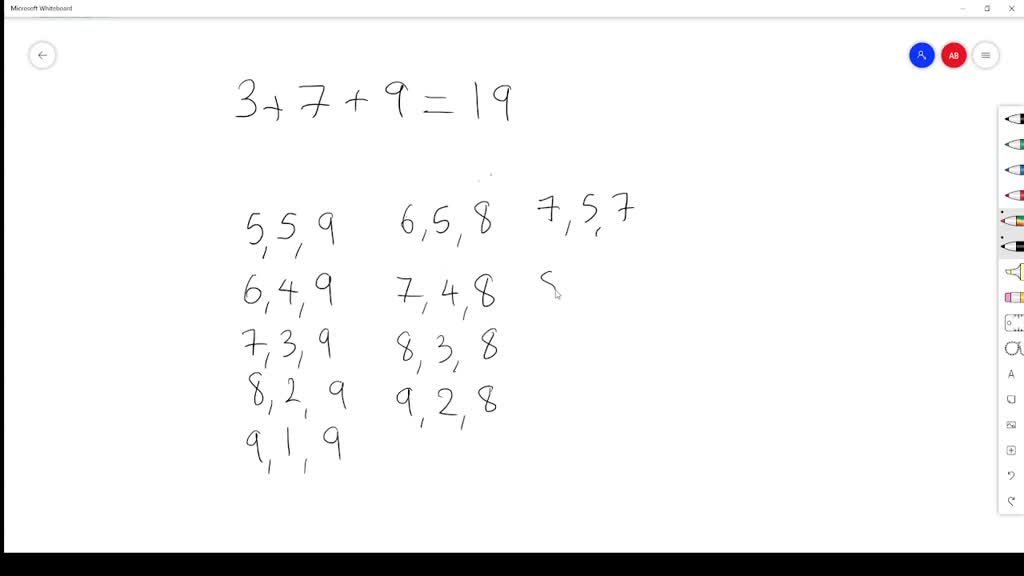 Microsoft Whiteboard
AB
3+7+9=19
5,5,9 6,5,8 7,5,7
6,4,9 7,4,8
7,3,9 8,3,8
8,2,9 9,2,8
9,1,9
A